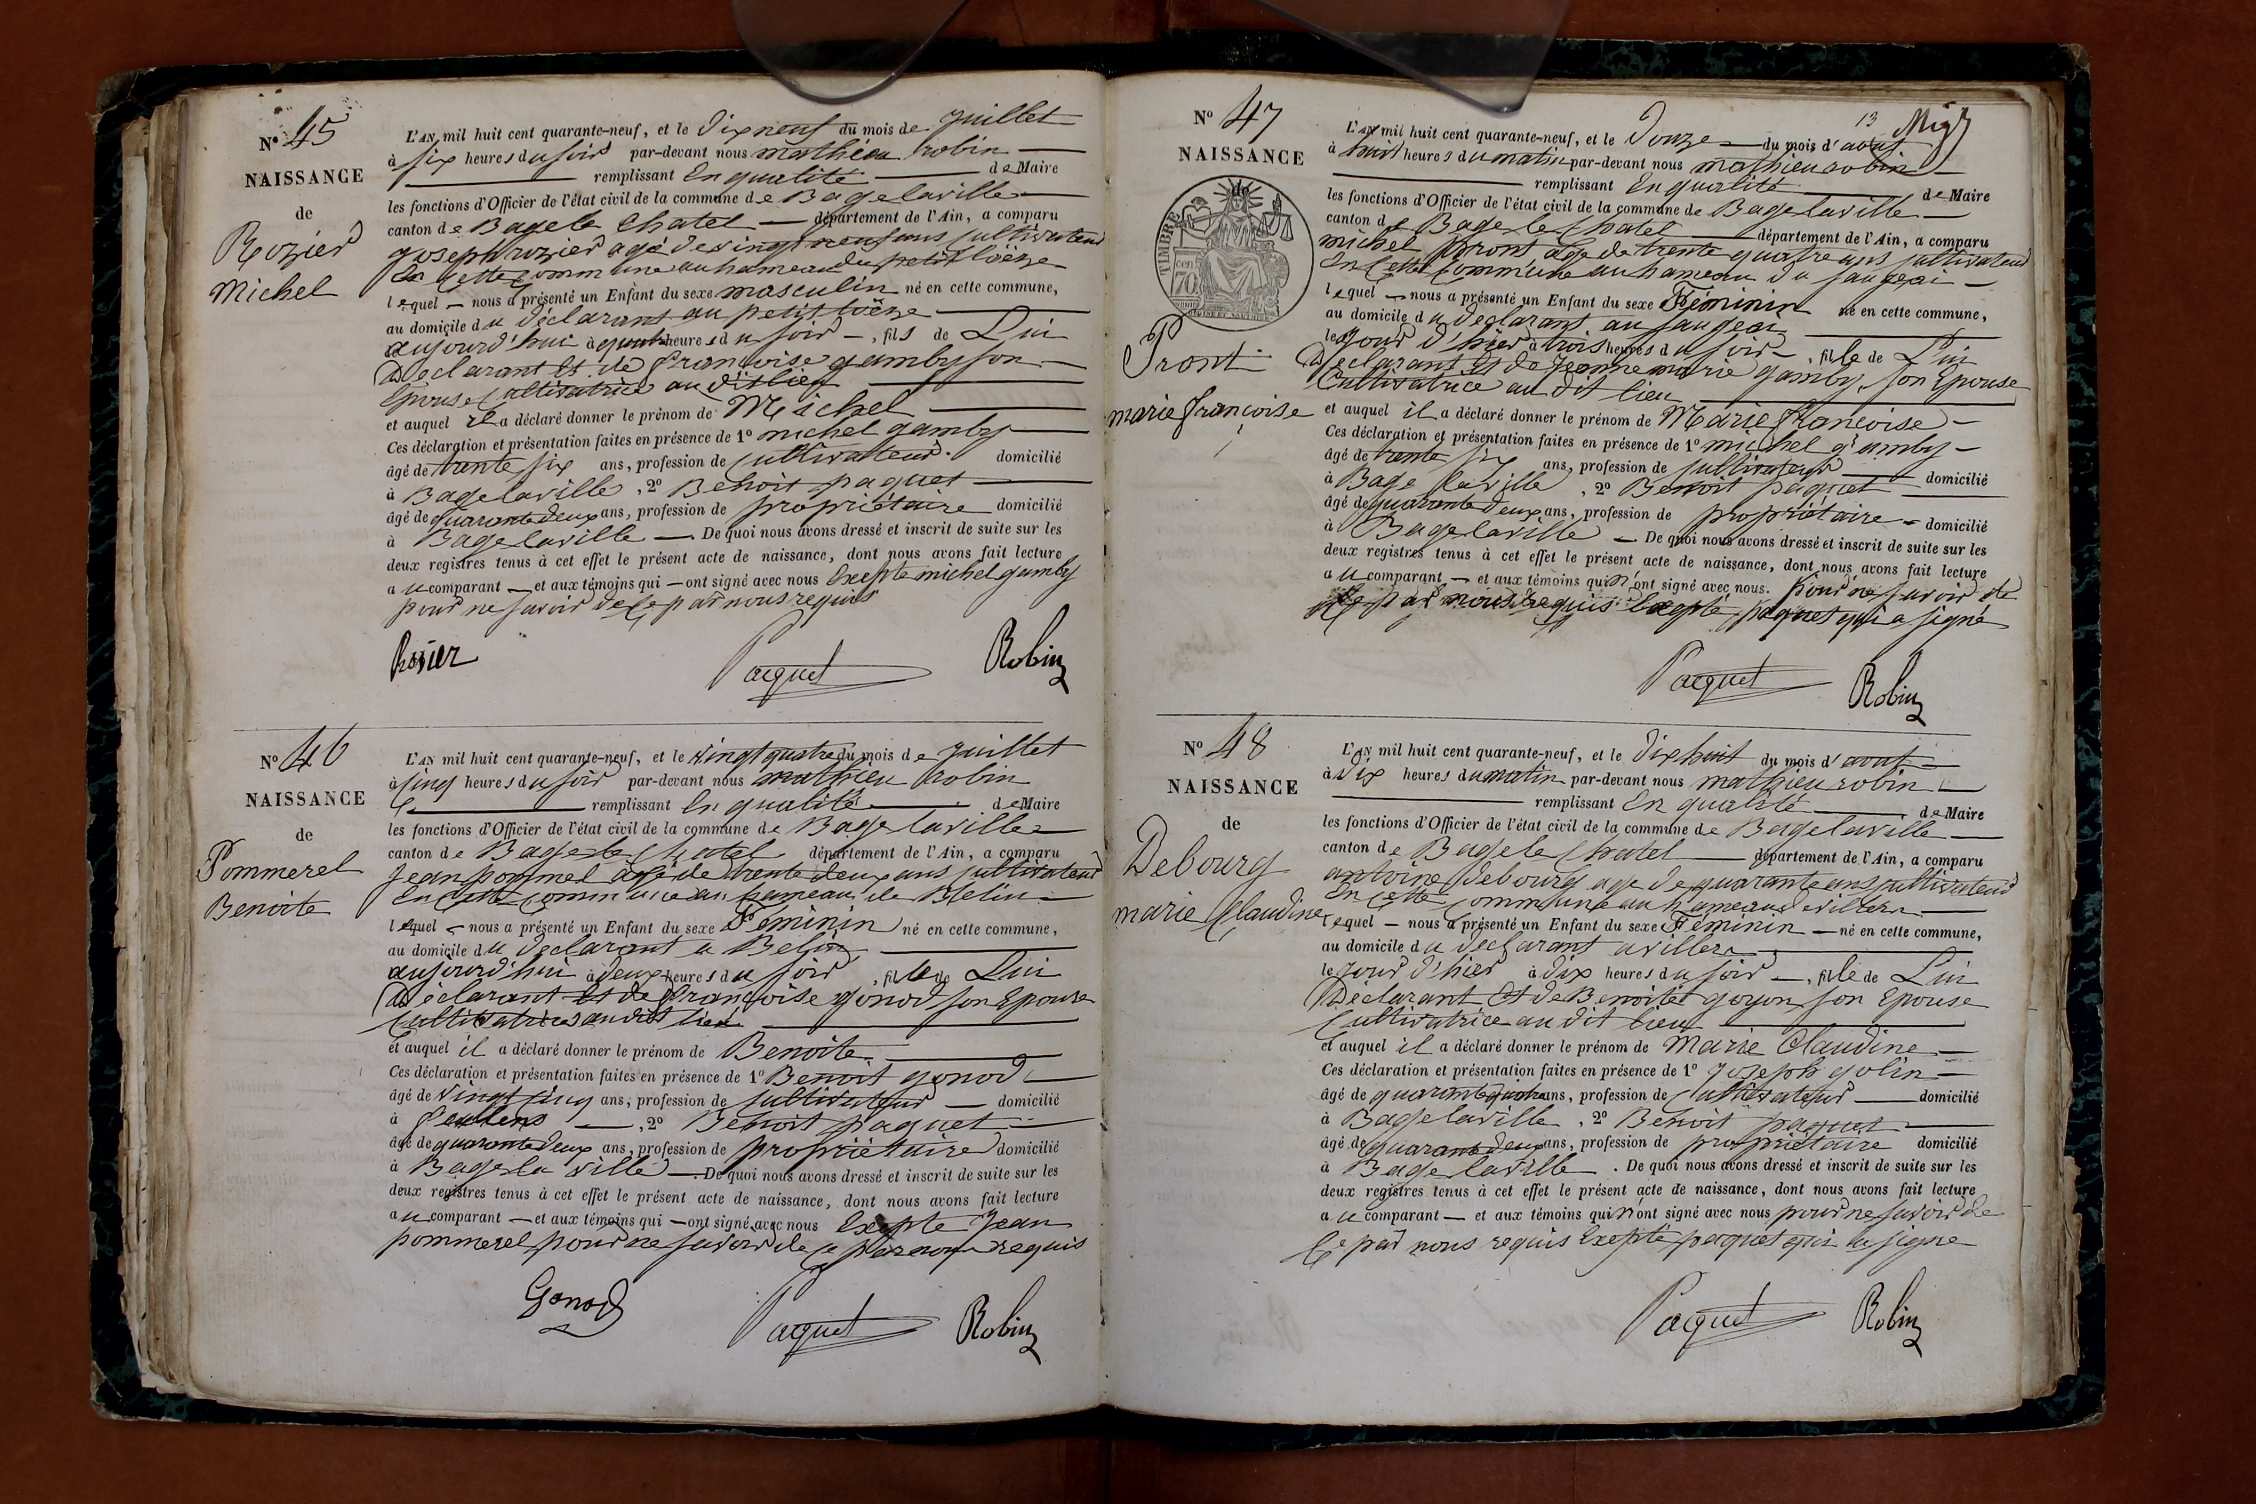 N° 45
NAISSANCE
de
Rozier
Michel
L'AN mil huit cent quarante-neuf, et le Dix neuf du mois de juillet
à six heures du soir par-devant nous mathieu robin
remplissant En qualité de Maire
les fonctions d'Officier de l'état civil de la commune de Bagelaville
canton de Bagele Chatel département de l'Ain, a comparu
joseph rozier agé de vingt neuf ans cultivateur
En cette commune au hameau du petit
lequel nous a présenté un Enfant du sexe masculin né en cette commune,
au domicile du déclarant au petit
aujourd'hui à heures du soir, fils de Lui
Déclarant Et de françoise gamby son
Epouse Cultivatrice au dit lieu
et auquel il a déclaré donner le prénom de Michel
Ces déclaration et présentation faites en présence de 1° michel gamby
âgé de trente six ans, profession de Cultivateur domicilié
à Bagelaville, 2° Benoit paquet
âgé de quarante deux ans, profession de propriétaire domicilié
à Bagelaville. De quoi nous avons dressé et inscrit de suite sur les
deux registres tenus à cet effet le présent acte de naissance, dont nous avons fait lecture
au comparant et aux témoins qui ont signé avec nous Excepté michel gamby
pour ne savoir de ce par nous requis
Rosier Paquet Robin
N° 46
NAISSANCE
de
Pommerel
Benoite
L'AN mil huit cent quarante-neuf, et le vingt quatre du mois de juillet
à cinq heures du soir par-devant nous mathieu robin
remplissant En qualité de Maire
les fonctions d'Officier de l'état civil de la commune de Bagelaville
canton de Bagele Chatel département de l'Ain, a comparu
jean pommel agé de trente deux ans cultivateur
En cette Commune au hameau de Belin
lequel nous a présenté un Enfant du sexe Féminin né en cette commune,
au domicile du déclarant a Belin
aujourd'hui à deux heures du soir, fille de Lui
Déclarant Et de françoise gonod son Epouse
Cultivatrice au dit lieu
et auquel il a déclaré donner le prénom de Benoite
Ces déclaration et présentation faites en présence de 1° Benoit gonod
âgé de vingt cinq ans, profession de Cultivateur domicilié
à, 2° Benoit paquet
âgé de quarante deux ans, profession de propriétaire domicilié
à Bagela ville. De quoi nous avons dressé et inscrit de suite sur les
deux registres tenus à cet effet le présent acte de naissance, dont nous avons fait lecture
au comparant et aux témoins qui ont signé avec nous Excepté jean
pommerel pour ne savoir de ce par nous requis
Gonod Paquet Robin
13
N° 47
NAISSANCE
de
TIMBRE
70
Pront
marie françoise
L'AN mil huit cent quarante-neuf, et le Douze du mois d'aout
à huit heures du matin par-devant nous mathieu robin
remplissant En qualité de Maire
les fonctions d'Officier de l'état civil de la commune de Bagelaville
canton de Bagele Chatel département de l'Ain, a comparu
michel pront agé de trente quatre ans cultivateur
En cette Commune au hameau du
lequel nous a présenté un Enfant du sexe Féminin né en cette commune,
au domicile du déclarant au
le jour d'hier à trois heures du soir, fille de Lui
Déclarant Et de jeanne marie gamby, son Epouse
Cultivatrice au dit lieu
et auquel il a déclaré donner le prénom de Marie françoise
Ces déclaration et présentation faites en présence de 1° michel gamby
âgé de trente six ans, profession de Cultivateur domicilié
à Bage la Ville, 2° Benoit paquet
âgé de quarante deux ans, profession de propriétaire domicilié
à Bagelaville De quoi nous avons dressé et inscrit de suite sur les
deux registres tenus à cet effet le présent acte de naissance, dont nous avons fait lecture
au comparant et aux témoins qui n'ont signé avec nous. Pour ne savoir de
ce par nous requis Excepté paquet qui a signé
Paquet Robin
N° 48
NAISSANCE
de
Debourg
marie Claudine
L'AN mil huit cent quarante-neuf, et le Dix huit du mois d'aout
à Dix heures du matin par-devant nous mathieu robin
remplissant En qualité de Maire
les fonctions d'Officier de l'état civil de la commune de Bagelaville
canton de Bagele Chatel département de l'Ain, a comparu
antoine debourg age de quarante ans cultivateur
En cette Commune au hameau de
lequel nous a présenté un Enfant du sexe Féminin né en cette commune,
au domicile du déclarant a
le jour d'hier à dix heures du soir, fille de Lui
Déclarant Et de Benoite goyon son Epouse
Cultivatrice au dit lieu
et auquel il a déclaré donner le prénom de Marie Claudine
Ces déclaration et présentation faites en présence de 1° joseph
âgé de quarante ans, profession de Cultivateur domicilié
à Bagelaville, 2° Benoit paquet
âgé de quarante deux ans, profession de propriétaire domicilié
à Bagelaville. De quoi nous avons dressé et inscrit de suite sur les
deux registres tenus à cet effet le présent acte de naissance, dont nous avons fait lecture
au comparant et aux témoins qui n'ont signé avec nous pour ne savoir de
Ce par nous requis Excepté paquet qui a signé
Paquet Robin